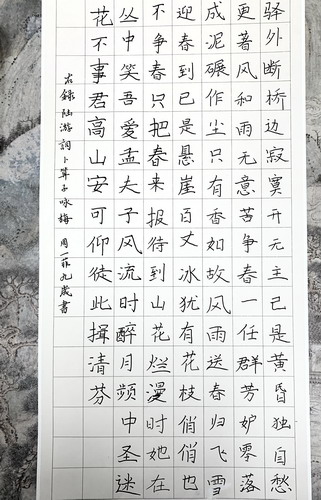 驿外断桥边寂寞开无主已是黄昏独自愁
更著风和雨无意苦争春一任群芳妒零落
成泥碾作尘只有香如故风雨送春归飞雪
迎春到已是悬崖百丈冰犹有花枝俏俏也
不争春只把春来报待到山花烂漫时她在
丛中笑吾爱孟夫子风流时醉月频中圣迷
花不事君高山安可仰徒此揖清芬
右錄陆游詞卜算子咏梅 周一菲九歲書